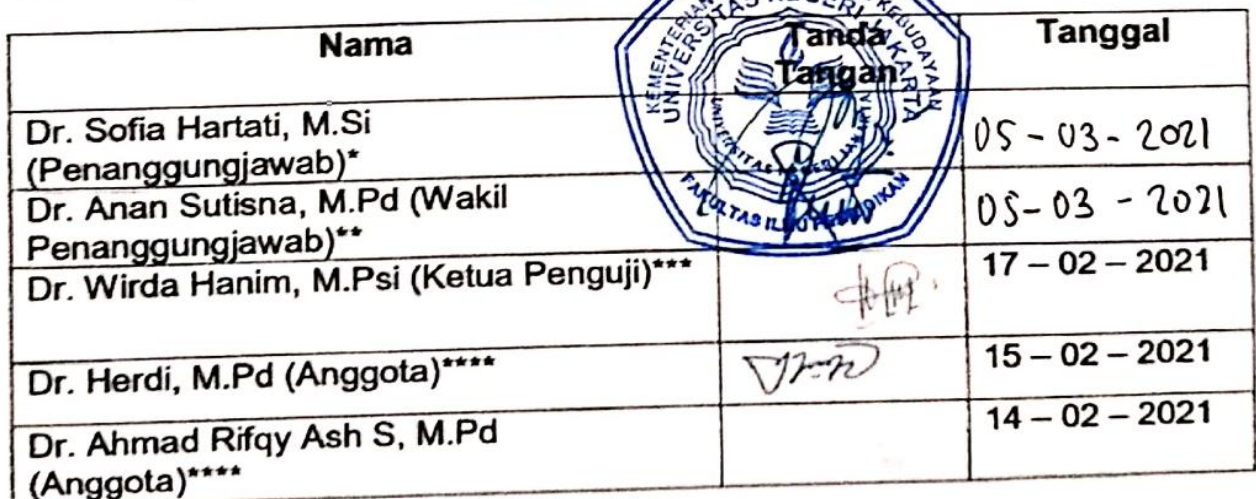 Nama
Tanda
Tangan
Tanggal
Dr. Sofia Hartati, M.Si
(Penanggungjawab)*
05 - 03 - 2021
Dr. Anan Sutisna, M.Pd (Wakil
Penanggungjawab)**
05 - 03 - 2021
Dr. Wirda Hanim, M.Psi (Ketua Penguji)***
17 – 02 – 2021
Dr. Herdi, M.Pd (Anggota)****
15 – 02 – 2021
Dr. Ahmad Rifqy Ash S, M.Pd
(Anggota)****
14 – 02 – 2021
KEBUDAYAAN
UNIVERSITAS NEGERI JAKARTA
UNIVERSITAS NEGERI JAKARTA
FAKULTAS ILMU PENDIDIKAN